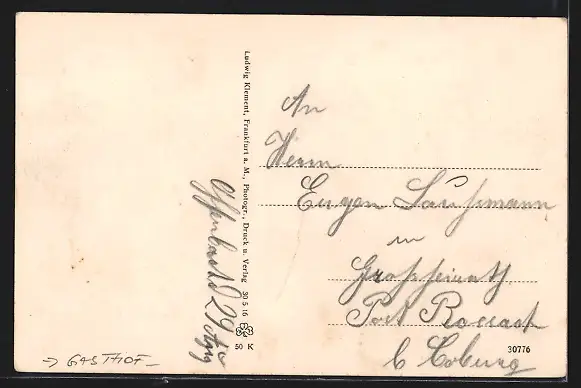 An
Herrn
Eugen Laufmann
in
Grossheirath
Post Rossach
b Coburg
Ludwig Klement, Frankfurt a. M., Photogr., Druck u. Verlag 30 5 16
50 K
Offenbach 29
30776
→ GASTHOF